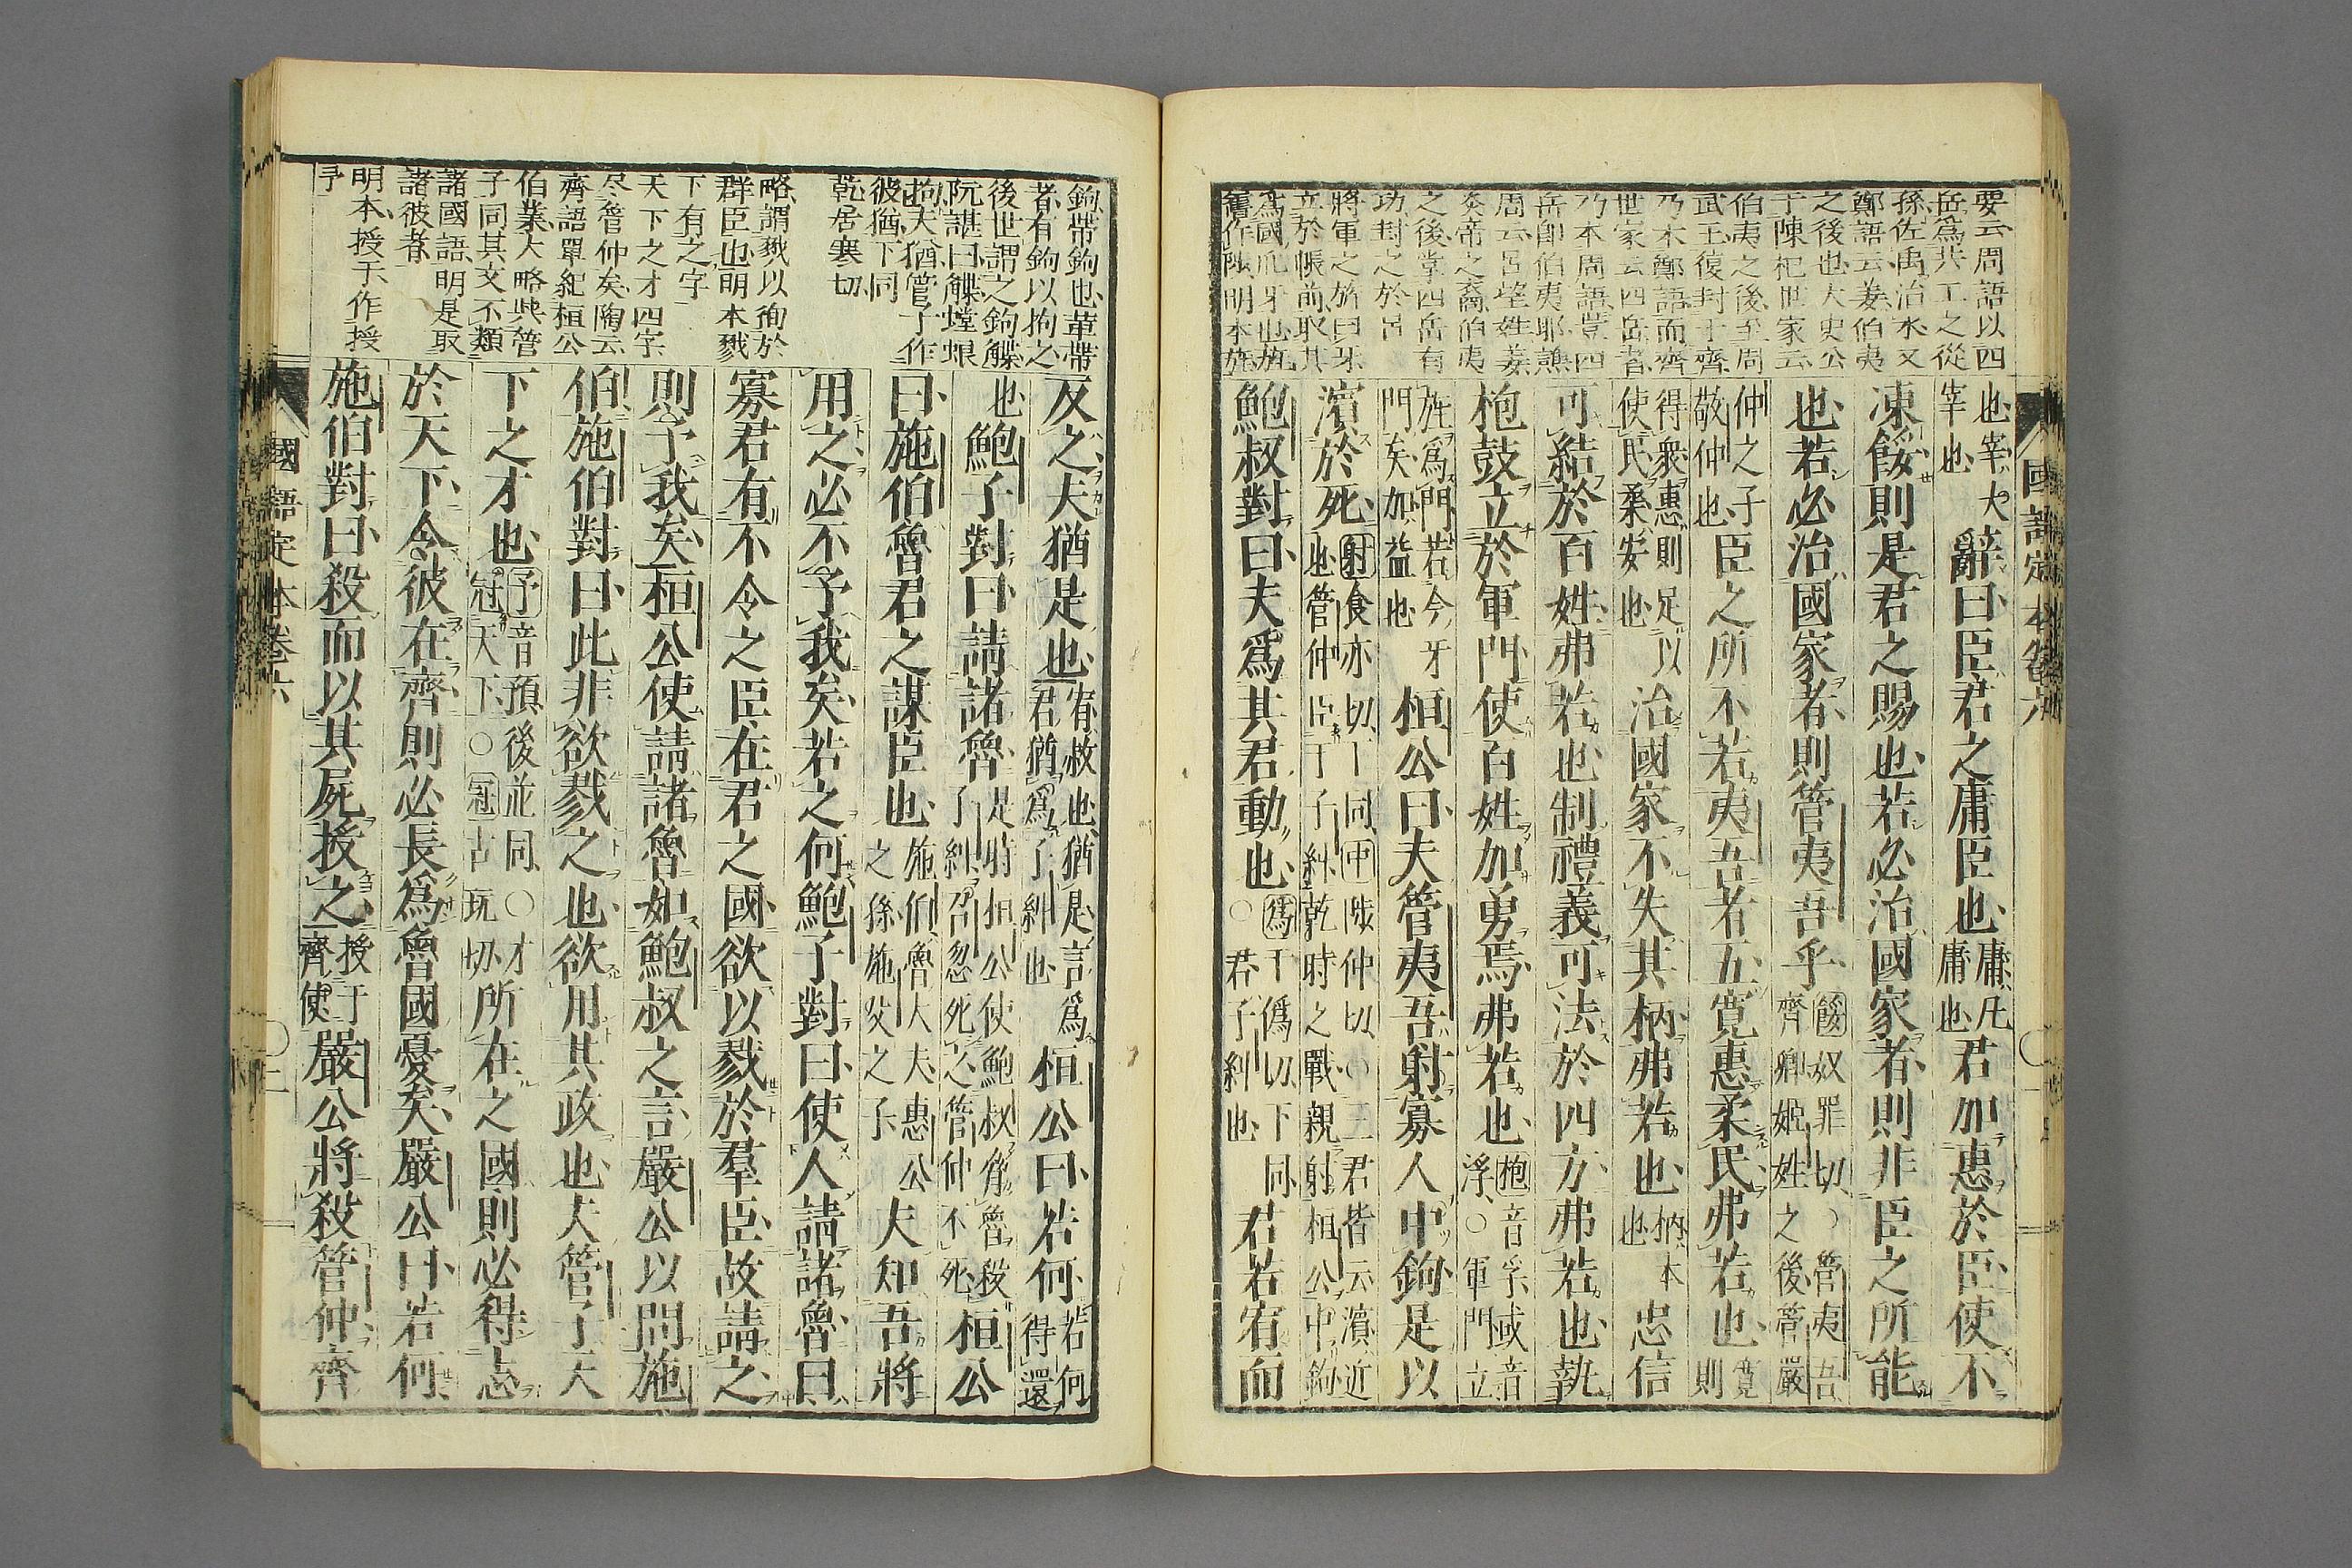 要云周語以四
岳爲共工之從
孫佐禹治水又
鄭語云姜伯夷
之後也大史公
于陳杞世家云
伯夷之後至周
武王復封于齊
乃木鄭語而齊
世家云四岳者
乃本周語豈四
岳卽伯夷耶譙
周云呂望姓姜
炎帝之裔伯夷
之後掌四岳有
功封之於呂
將軍之旂曰牙
立於帳前取其
爲國爪牙也旌
明本旌
國語定本卷六
也宰大宰也辭曰臣君之庸臣也庸凡庸也君加惠於臣使不
凍餒則是君之賜也若必治國家者則非臣之所能
也若必治國家者則管夷吾乎餒奴罪切○管夷吾齊卿姬姓之後管嚴
仲之子敬仲也臣之所不若夷吾者五寬惠柔民弗若也寬則
得衆惠則足以使民柔安也治國家不失其柄弗若也柄本也忠信
可結於百姓弗若也制禮義可法於四方弗若也執
枹鼓立於軍門使百姓加勇焉弗若也枹音孚或音浮○軍門立
旌爲門若今牙門矣加益也桓公曰夫管夷吾射寡人中鉤是以
濱於死射食亦切下同中陟仲切○三君皆云濱近也管仲臣于子糾乾時之戰親射桓公中鉤
鮑叔對曰夫爲其君動也爲于僞切下同○君子糾也君若宥而
鉤帶鉤也革帶
者有鉤以拘之
後世謂之鉤䚢
阮諶曰䚢螳蜋
拘夫猶管子作
彼猶下同
乾居寒切
略謂戮以徇於
群臣也明本戮
下有之字
天下之才四字
尽管仲矣陶云
齊語單紀桓公
伯業大略與管
子同其文不類
諸國語明是取
諸彼者
明本授于作授
予
反之夫猶是也宥赦也猶是言爲君猶爲子糾也桓公曰若何若何得還
也鮑子對曰請諸魯是時桓公使鮑叔脅魯殺子糾召忽死之管仲不死桓公
曰施伯魯君之謀臣也施伯魯大夫惠公之孫施父之子夫知吾將
用之必不予我矣若之何鮑子對曰使人請諸魯曰
寡君有不令之臣在君之國欲以戮於羣臣故請之
則予我矣桓公使請諸魯如鮑叔之言嚴公以問施
伯施伯對曰此非欲戮之也欲用其政也夫管子天
下之才也予音預後並同○才冠天下○冠古玩切所在之國則必得志
於天下令彼在齊則必長爲魯國憂矣嚴公曰若何
施伯對曰殺而以其屍授之授于齊使嚴公將殺管仲齊
國語定本卷六
二